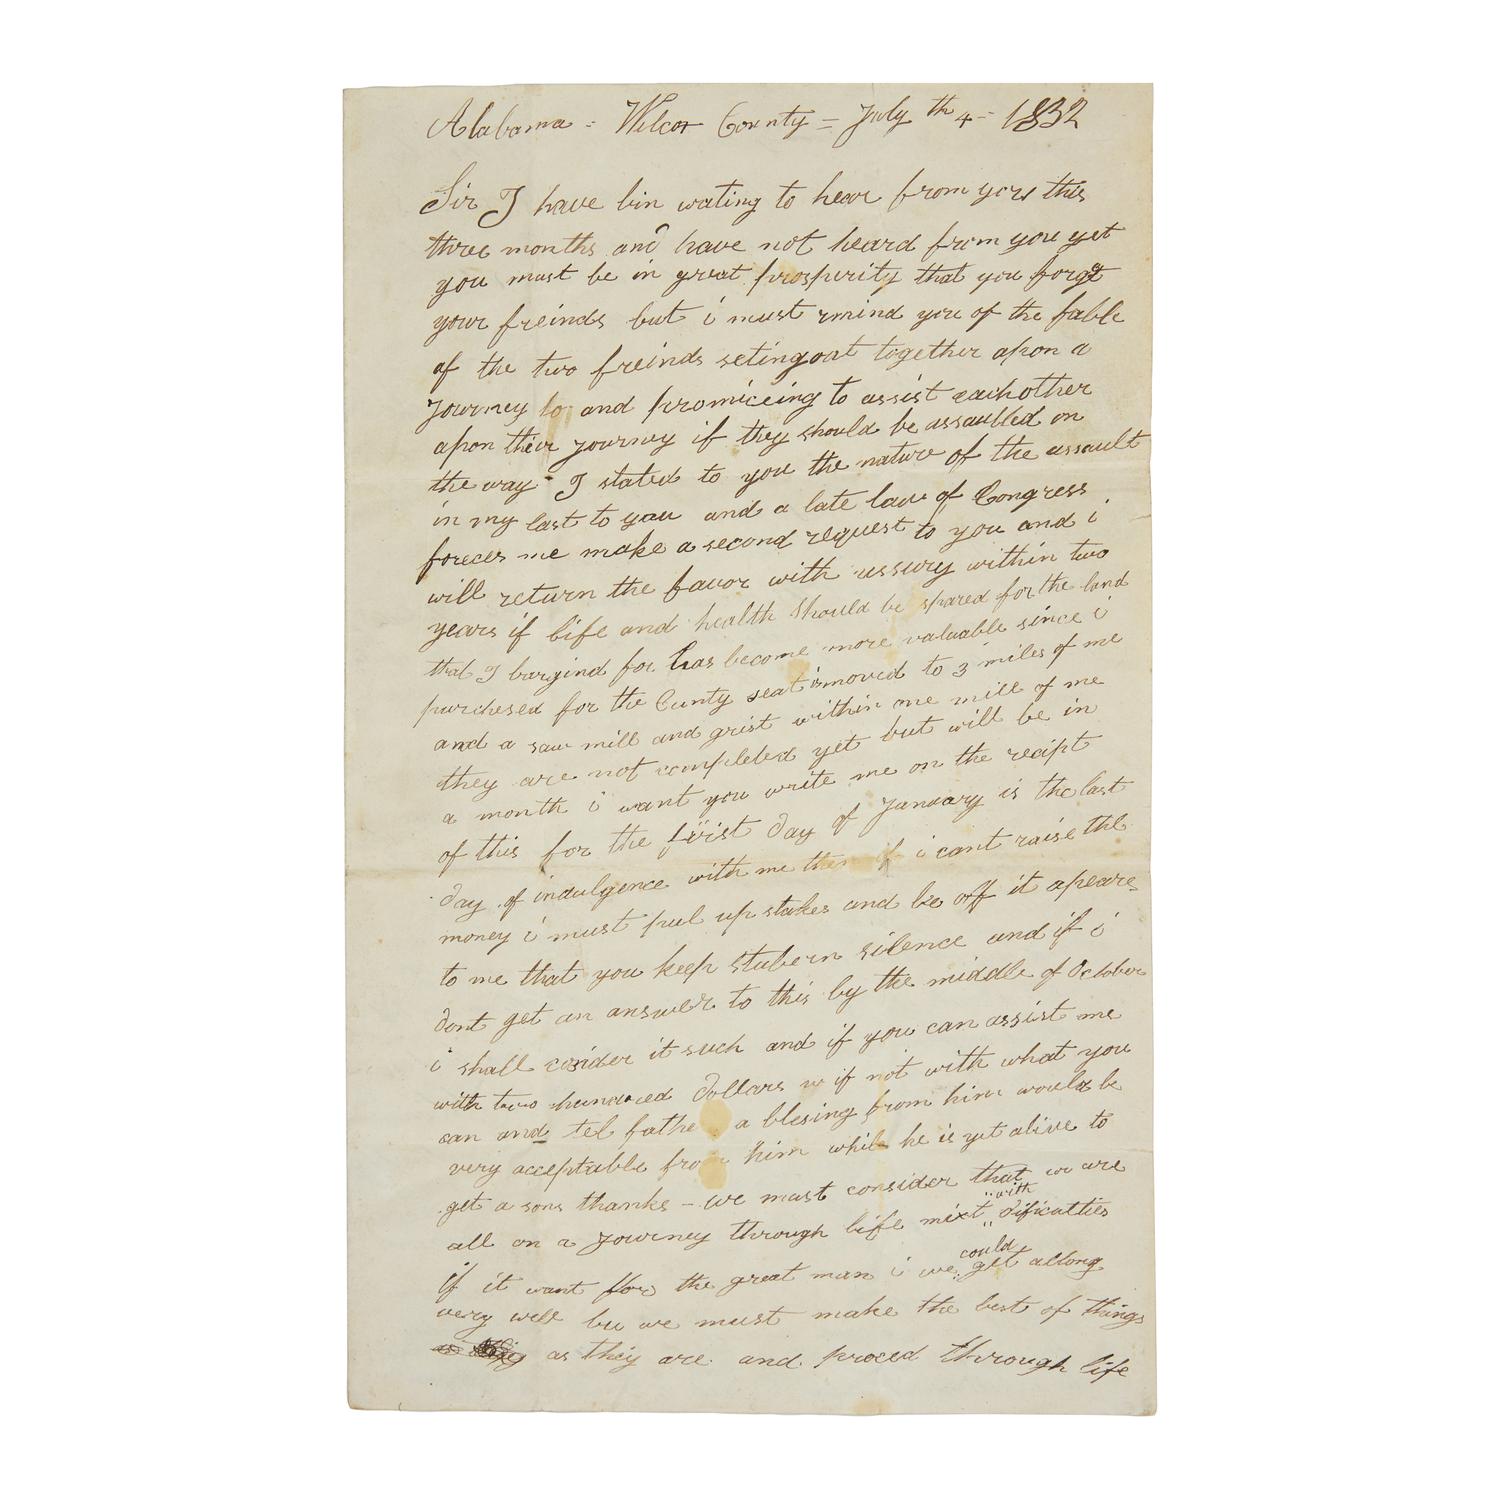 Alabama = Wilcox County = July th 4 - 1832
Sir I have bin wating to hear from you this
three months and have not heard from you yet
you must be in great prosperity that you forgt
your freinds but i must rmind you of the fable
of the two freinds setingout together apon a
Journey to and promiceing to assist eachother
apon their journey if they should be assaulted on
the way - I stated to you the nature of the assault
in my last to you and a late law of Congress
forces me make a second request to you and i
will return the favor with ussury within two
years if life and health should be spared for the land
that I bargind for has become more valuable since i
purchesed for the Cunty seat is moved to 3 miles of me
and a saw mill and grist within one mill of me
they are not completed yet but will be in
a month i want you write me on the recipt
of this for the first day of January is the last
day of indulgence with me then if i cant raise the
money i must pul up stakes and be off it apeares
to me that you keep stubern silence and if i
dont get an answer to this by the middle of October
i shall cosider it such and if you can assist me
with two hundred dollars if not with what you
can and tel fathe a blesing from him would be
very acceptable from him while he is yet alive to
get a sons thanks - we must consider that we are
all on a journey through life mixt "with" dificulties
if it want for the great man i we could get allong
very well bu we must make the best of things
as they are and proced through life